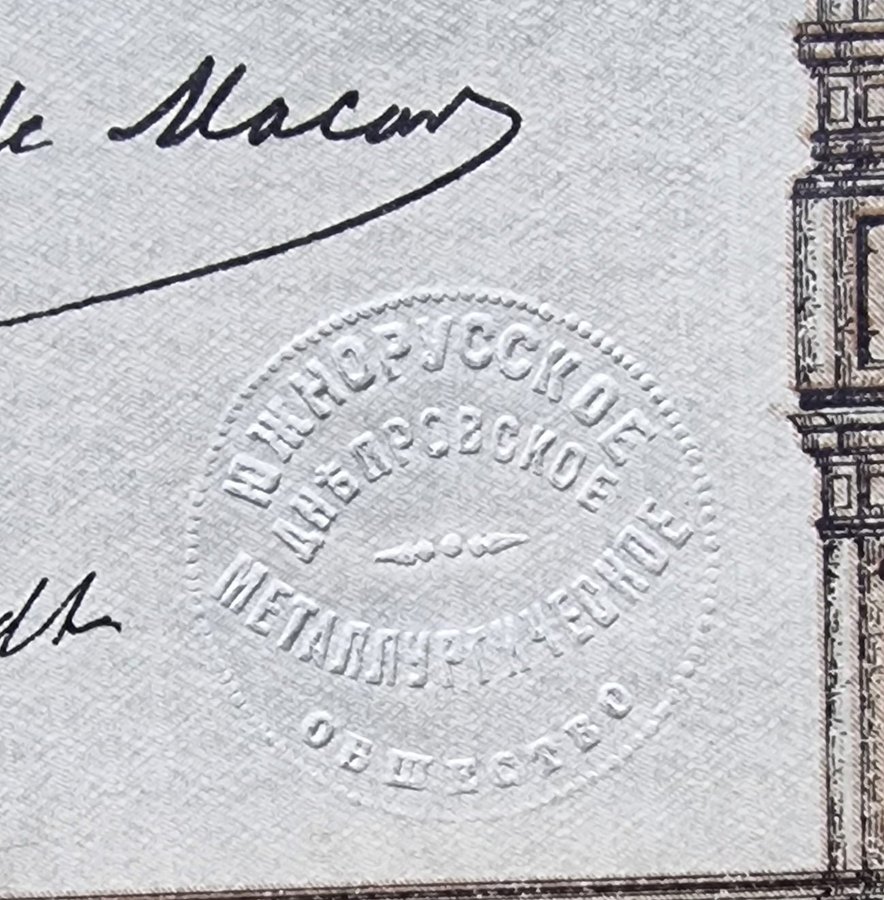 de Macar
ЮЖНОРУССКОЕ
ДНѢПРОВСКОЕ
МЕТАЛЛУРГИЧЕСКОЕ
ОБЩЕСТВО